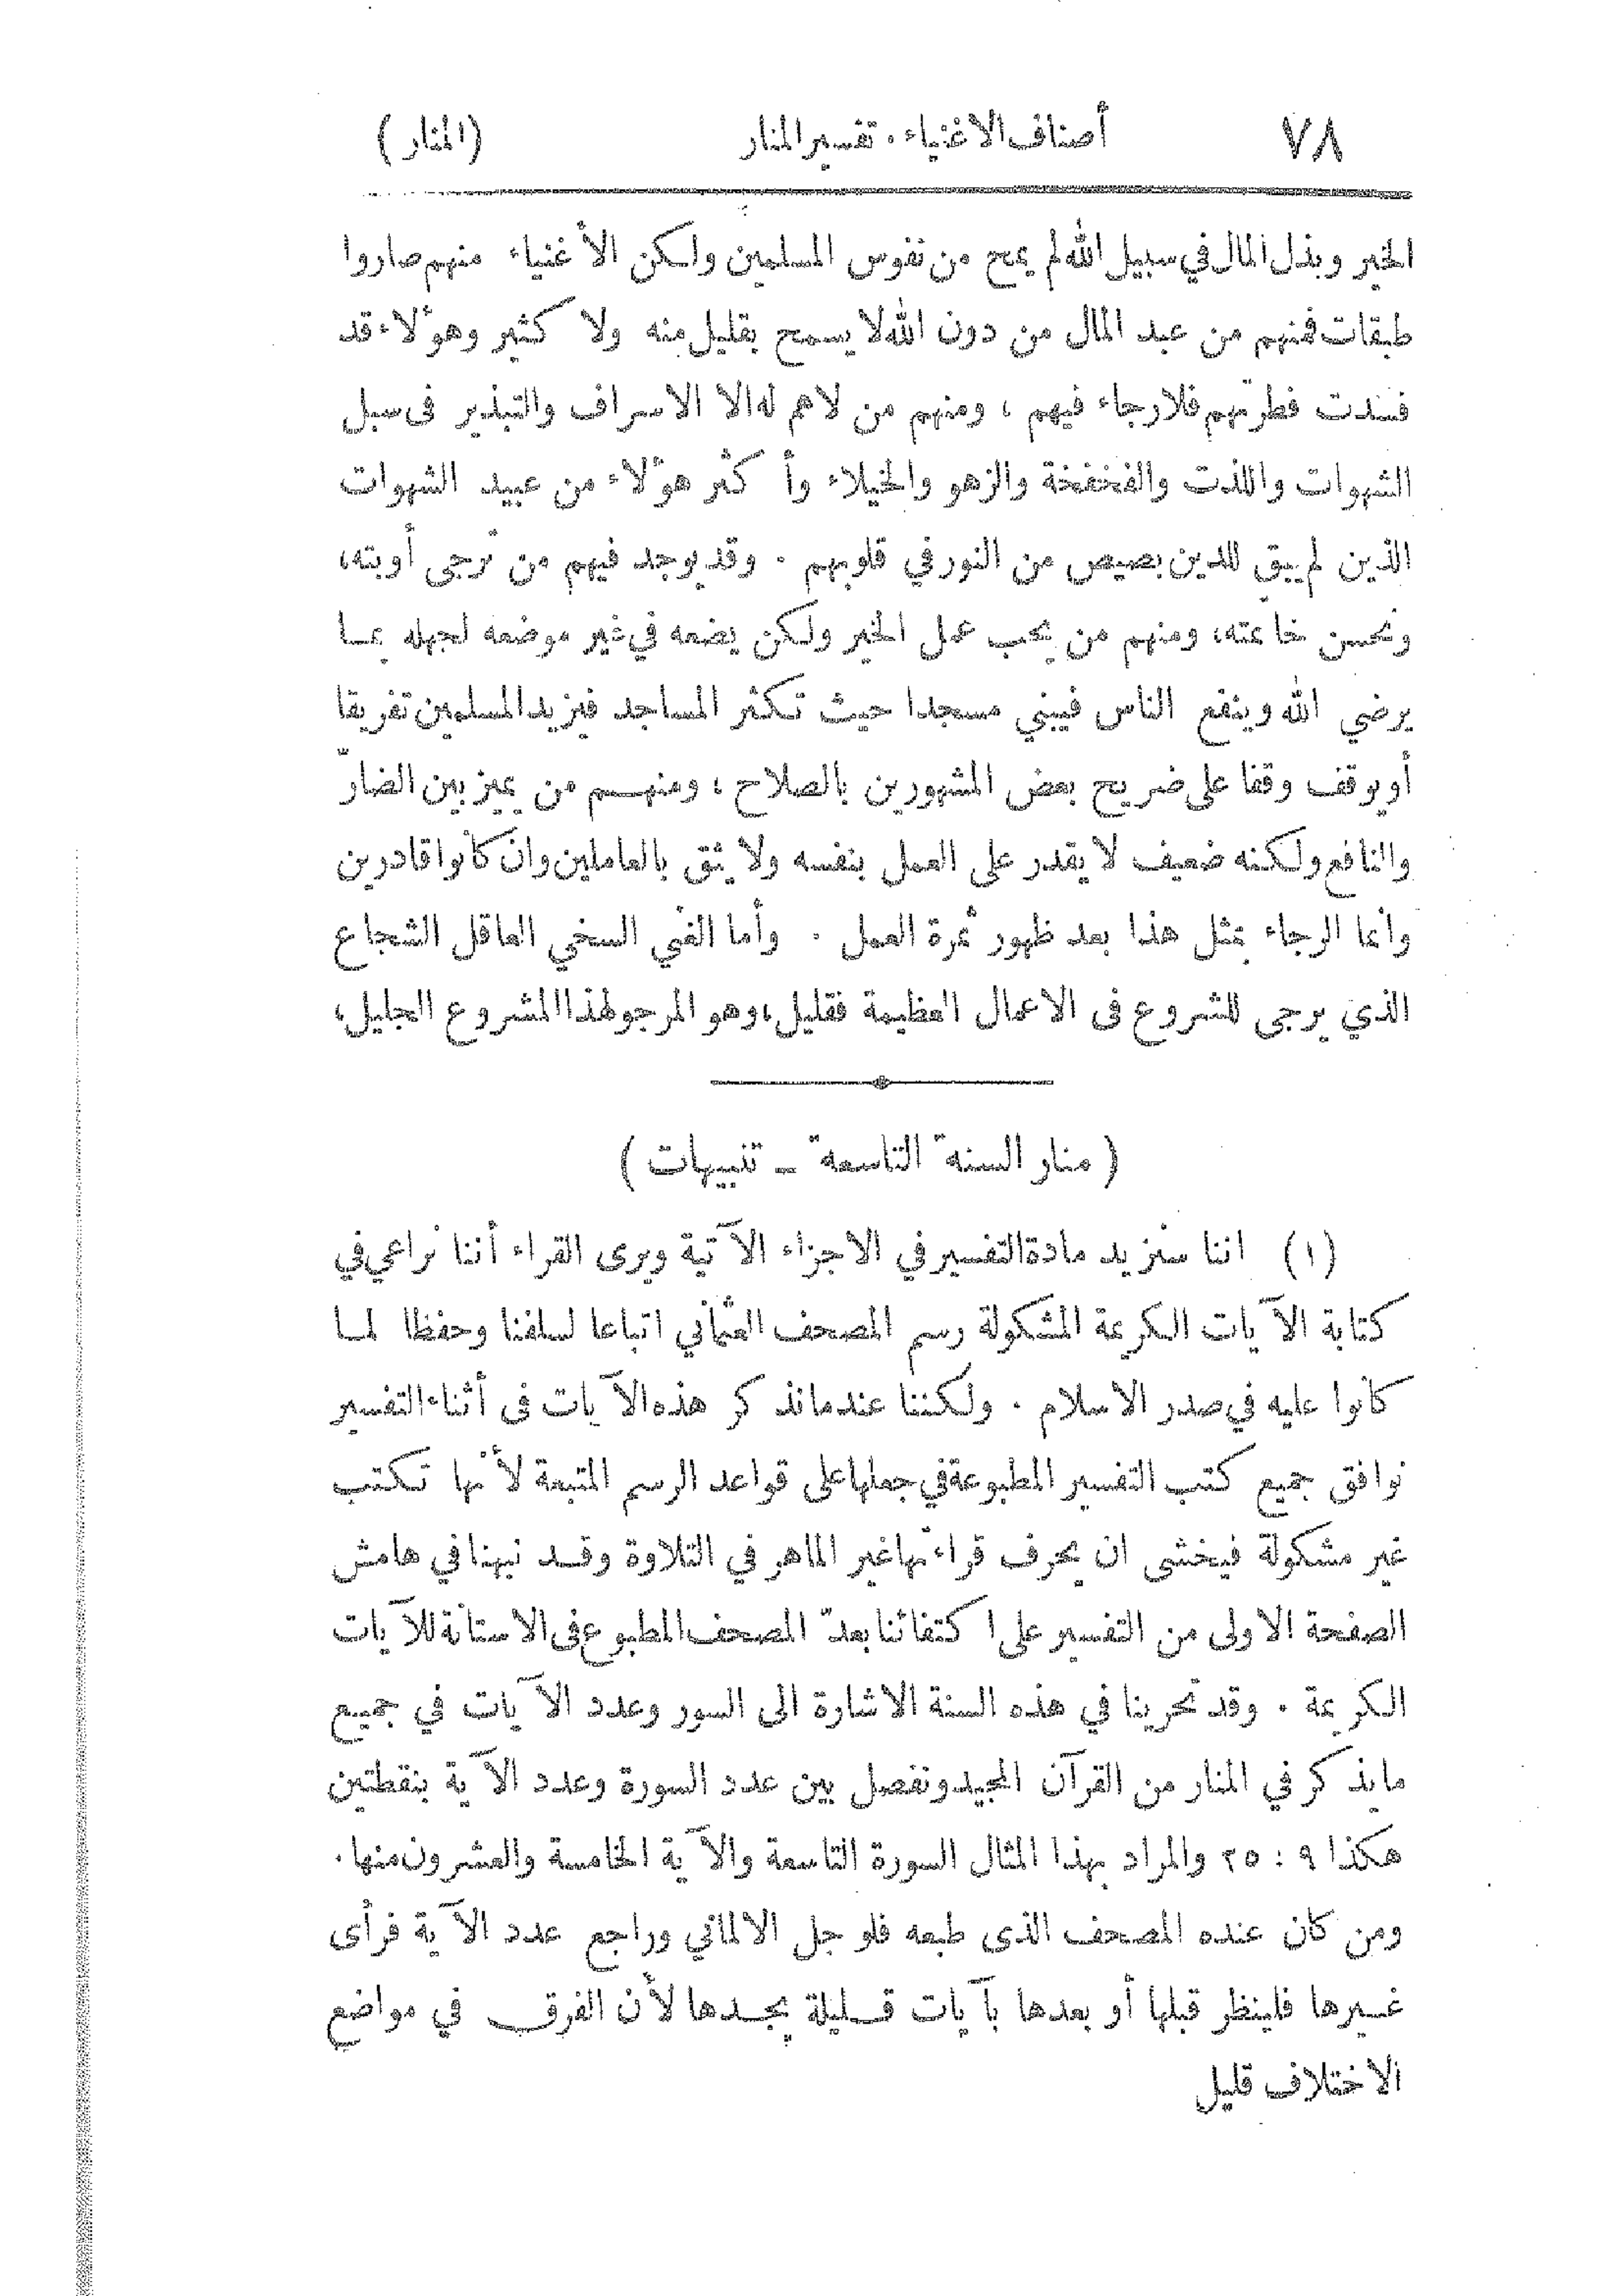 ٧٨ أصناف الاغنياء . تفسير المنار (المنار)
الخير وبذل المال في سبيل الله لم يمح من نفوس المسلمين ولكن الأغنياء منهم صاروا
طبقات فمنهم من عبد المال من دون الله لا يسمح بقليل منه ولا كثير وهؤلاء قد
فسدت فطرتهم فلا رجاء فيهم ، ومنهم من لا هم له الا الاسراف والتبذير فى سبل
الشهوات واللذت والفخفخة والزهو والخيلاء وأكثر هؤلاء من عبيد الشهوات
الذين لم يبق للدين بصيص من النور في قلوبهم . وقد يوجد فيهم من ترجى أوبته،
وتحسن خاتمته، ومنهم من يحب عمل الخير ولكن يضعه في غير موضعه لجهله بما
يرضي الله وينفع الناس فيبني مسجدا حيث تكثر المساجد فيزيد المسلمين تفريقا
أو يوقف وقفا على ضريح بعض المشهورين بالصلاح ، ومنهم من يميز بين الضارّ
والنافع ولكنه ضعيف لا يقدر على العمل بنفسه ولا يثق بالعاملين وان كانوا قادرين
وانما الرجاء بمثل هذا بعد ظهور ثمرة العمل . وأما الغني السخي العاقل الشجاع
الذي يرجى للشروع فى الاعمال العظيمة فقليل، وهو المرجو لهذا المشروع الجليل،
( منار السنة التاسعة ــ تنبيهات )
(١) اننا سنزيد مادة التفسير في الاجزاء الآتية ويرى القراء أننا نراعي في
كتابة الآيات الكريمة المشكولة رسم المصحف العثماني اتباعا لسلفنا وحفظا لما
كانوا عليه في صدر الاسلام . ولكننا عند ما نذكر هذه الآيات فى أثناء التفسير
نوافق جميع كتب التفسير المطبوعة في جعلها على قواعد الرسم المتبعة لأنها تكتب
غير مشكولة فيخشى ان يحرف قراءتها غير الماهر في التلاوة وقد نبهنا في هامش
الصفحة الاولى من التفسير على اكتفائنا بعدّ المصحف المطبوع فى الاستانة للآيات
الكريمة . وقد تحرينا في هذه السنة الاشارة الى السور وعدد الآيات في جميع
ما يذكر في المنار من القرآن المجيد ونفصل بين عدد السورة وعدد الآية بنقطتين
هكذا ٩ : ٢٥ والمراد بهذا المثال السورة التاسعة والآية الخامسة والعشرون منها .
ومن كان عنده المصحف الذى طبعه فلوجل الالماني وراجع عدد الآية فرأى
غيرها فلينظر قبلها أو بعدها بآيات قليلة يجدها لأن الفرق في مواضع
الاختلاف قليل